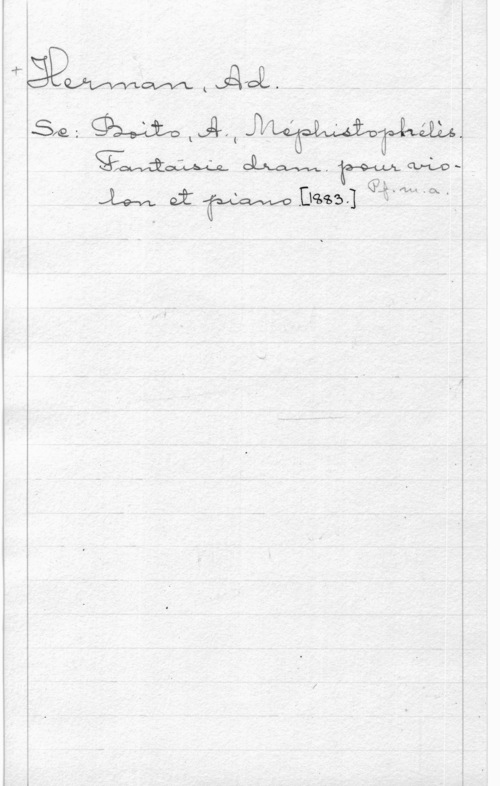 + Herman, Ad.
Se: Boito, A., Méphistophélès.
Fantaisie dram. pour vio-
lon et piano [1883.] Pf. m. a.